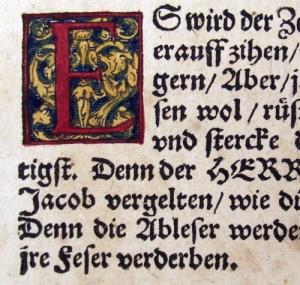 ES wird der Ze
erauff zihen/
gern/ Aber/ j
sen wol/ rüs
vnd stercke d
tigst. Denn der HERR
Jacob vergelten/ wie di
Denn die Ableser werde
jre Feser verderben.